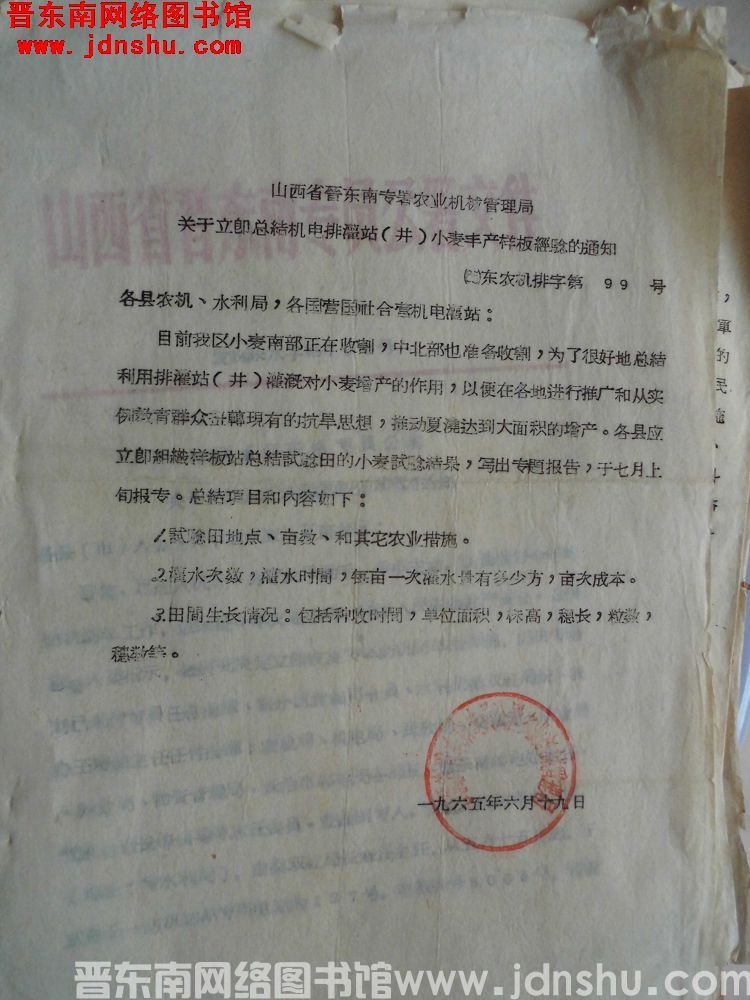 晋东南网络图书馆
www.jdnshu.com
山西省晉东南专署农业机械管理局
关于立即总結机电排灌站(井)小麦丰产样板經驗的通知
东农机排字第 99 号
各县农机、水利局,各国营国社合营机电灌站:
目前我区小麦南部正在收割,中北部也准备收割,为了很好地总結
利用排灌站(井)灌溉对小麦增产的作用,以便在各地进行推广和从实
例教育群众扭轉現有的抗旱思想,推动夏澆达到大面积的增产。各县应
立即組織样板站总結試驗田的小麦試驗結果,写出专題报告,于七月上
旬报专。总結項目和內容如下:
1.試驗田地点、亩数、和其它农业措施。
2.灌水次数,灌水时間,每亩一次灌水量有多少方,亩次成本。
3.田間生长情况:包括种收时間,单位面积,株高,穗长,粒数,
穗数等。
一九六五年六月十九日
晋东南网络图书馆www.jdnshu.com